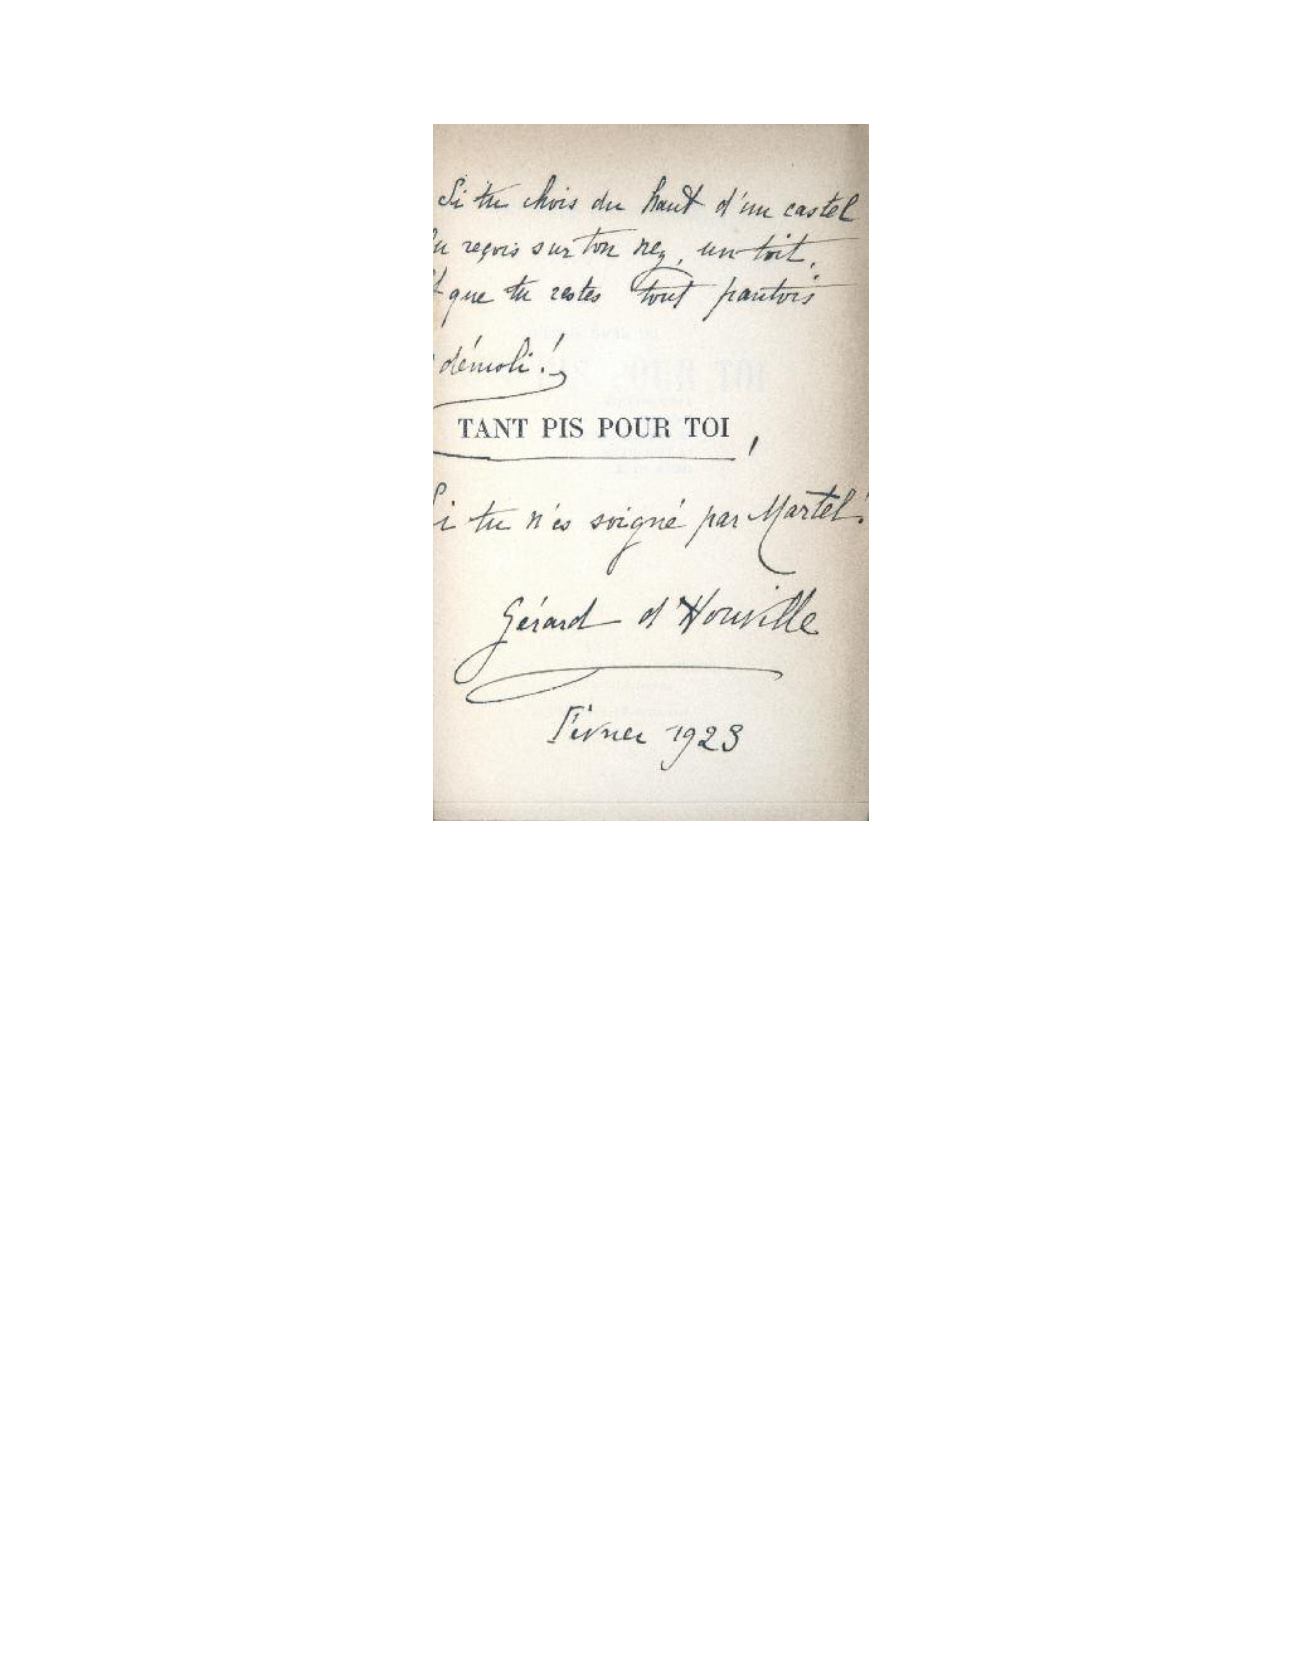 Si tu chois du haut d'un castel
u reçois sur ton nez, un toit,
que tu restes tout pantois
démoli!
TANT PIS POUR TOI,
Si tu n'es soigné par Martel!
Gérard d'Houville
Février 1923